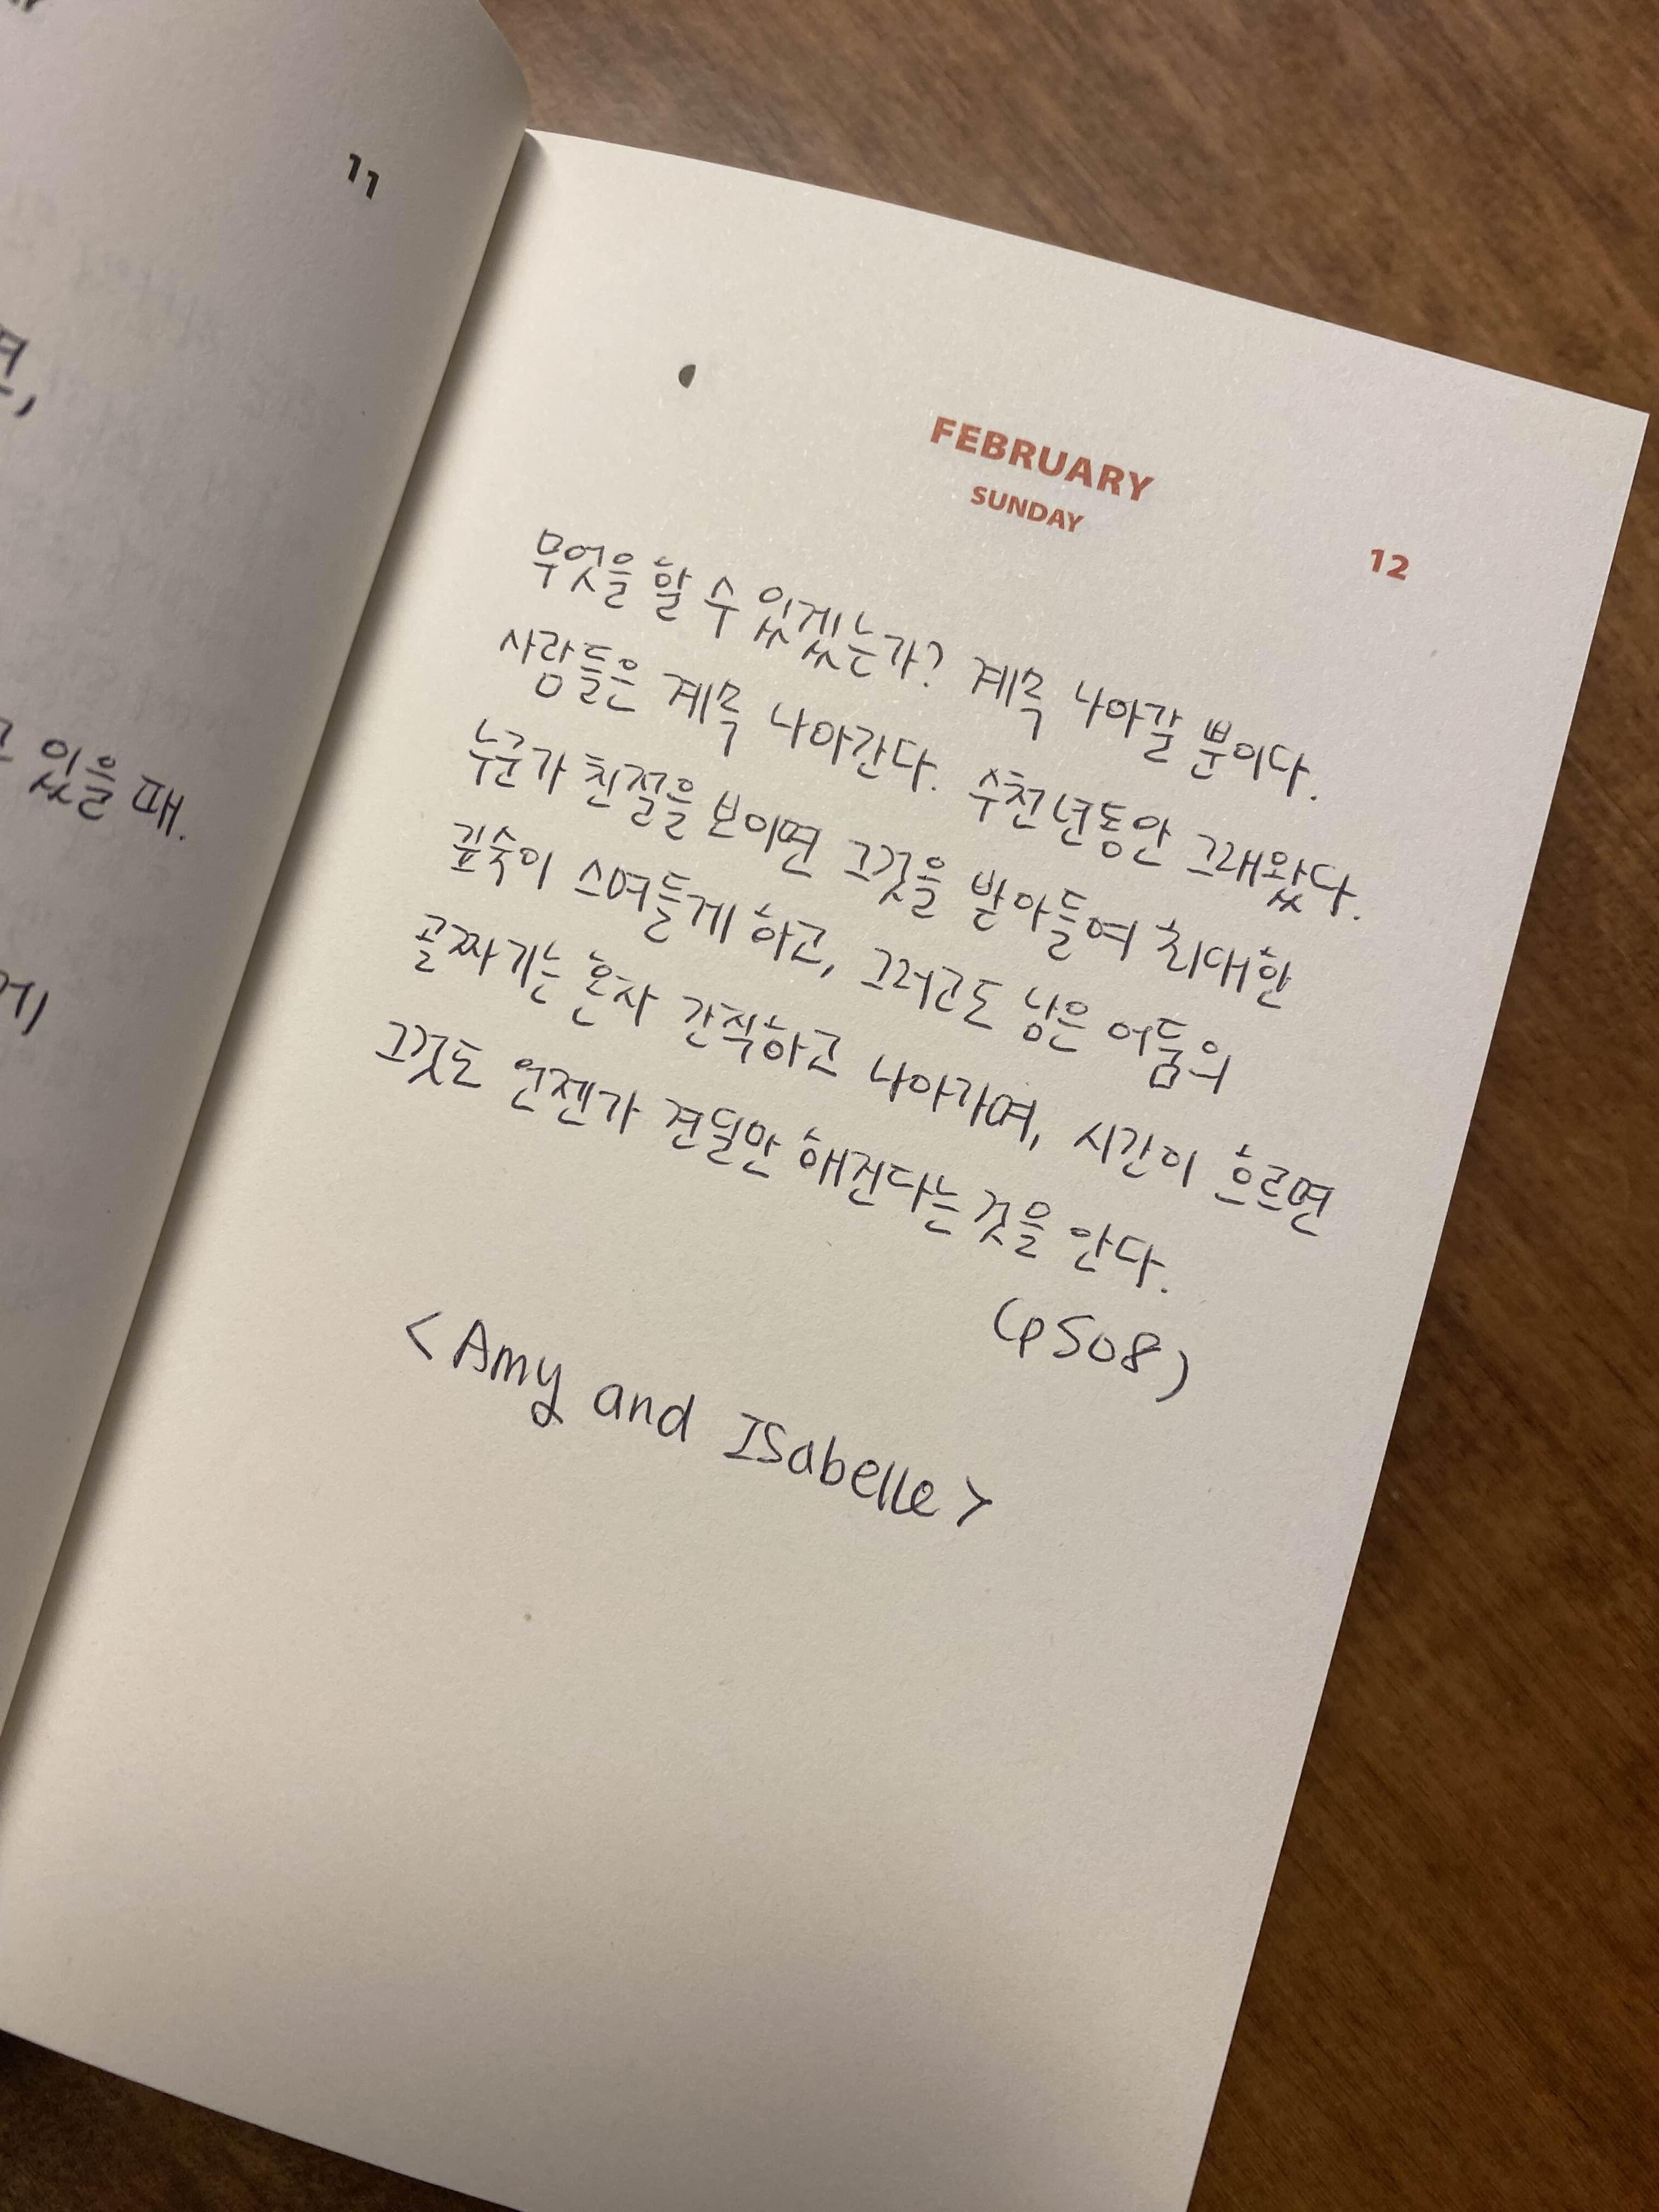 11
있을 때.
FEBRUARY
SUNDAY
12
무엇을 할 수 있겠는가? 계속 나아갈 뿐이다.
사람들은 계속 나아간다. 수천년동안 그래왔다.
누군가 친절을 보이면 그것을 받아들여 최대한
깊숙이 스며들게 하고, 그러고도 남은 어둠의
골짜기는 혼자 간직하고 나아가며, 시간이 흐르면
그것도 언젠가 견딜만 해진다는 것을 안다.
(p508)
<Amy and Isabelle>